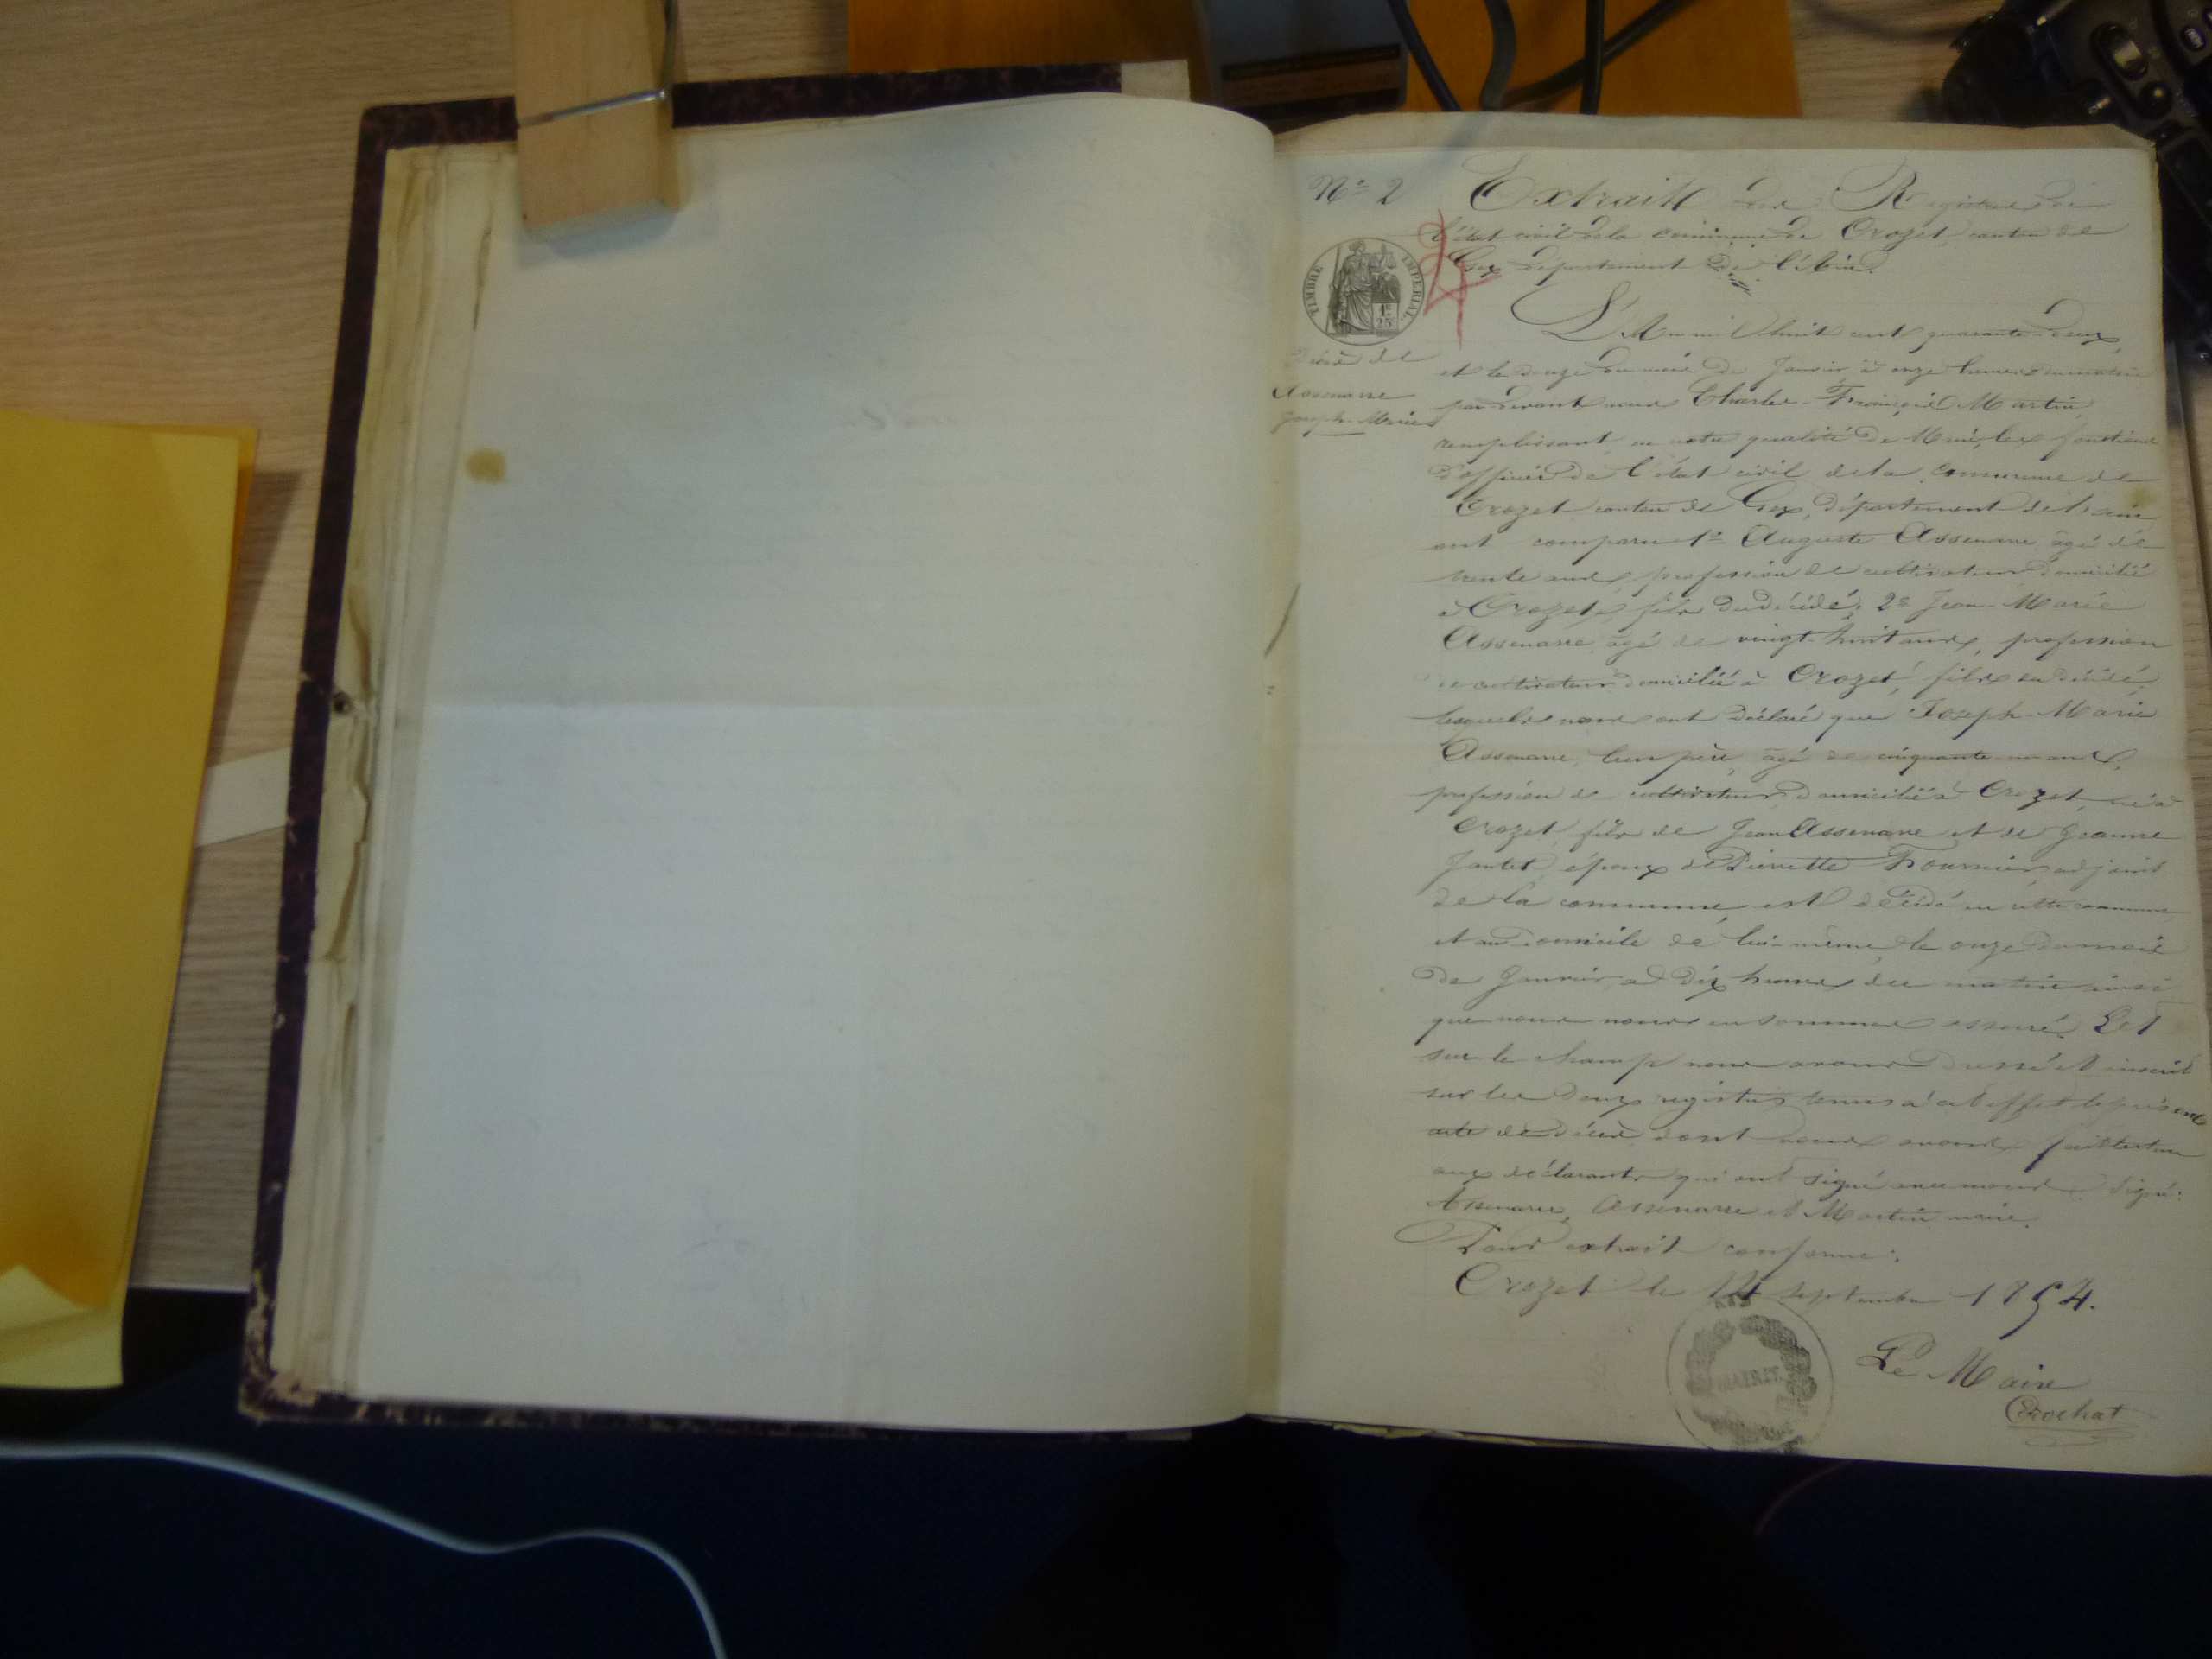 Nº 2
Extrait des Registres de
l'état civil de la commune de Crozet, canton de
Gex Département de l'Ain.
TIMBRE IMPERIAL
1F
25
Décès de
Assenarre
Joseph-Marie
L'An mil huit cent quarante-deux,
et le douze du mois de Janvier à onze heures du matin
par devant nous Charles-François Martin,
remplissant en notre qualité de Maire, les fonctions
d'officier de l'état civil de la commune de
Crozet canton de Gex, département de l'ain
ont comparu 1º Auguste Assenarre, âgé de
trente ans, profession de cultivateur domicilié
à Crozet, fils du décédé; 2º Jean-Marie
Assenarre, âgé de vingt-huit ans, profession
de cultivateur domicilié à Crozet, fils du décédé,
lesquels nous ont déclaré que Joseph-Marie
Assenarre, leur père, âgé de cinquante ans,
profession de cultivateur, domicilié à Crozet, né à
Crozet, fils de Jean Assenarre et de Jeanne
Jantet, époux de Pierrette Fournier, adjoint
de la commune, est décédé en cette commune
et au domicile de lui-même, le onze du mois
de Janvier, à dix heures du matin ainsi
que nous nous en sommes assuré. Et
sur le champ nous avons dressé et inscrit
sur les deux registres tenus à cet effet le présent
acte de décès dont nous avons fait lecture
aux déclarants qui ont signé avec nous. Signé:
Assenarre, Assenarre et Martin, maire.
Pour extrait conforme:
Crozet le 14 septembre 1854.
MAIRIE
Le Maire
Crochat